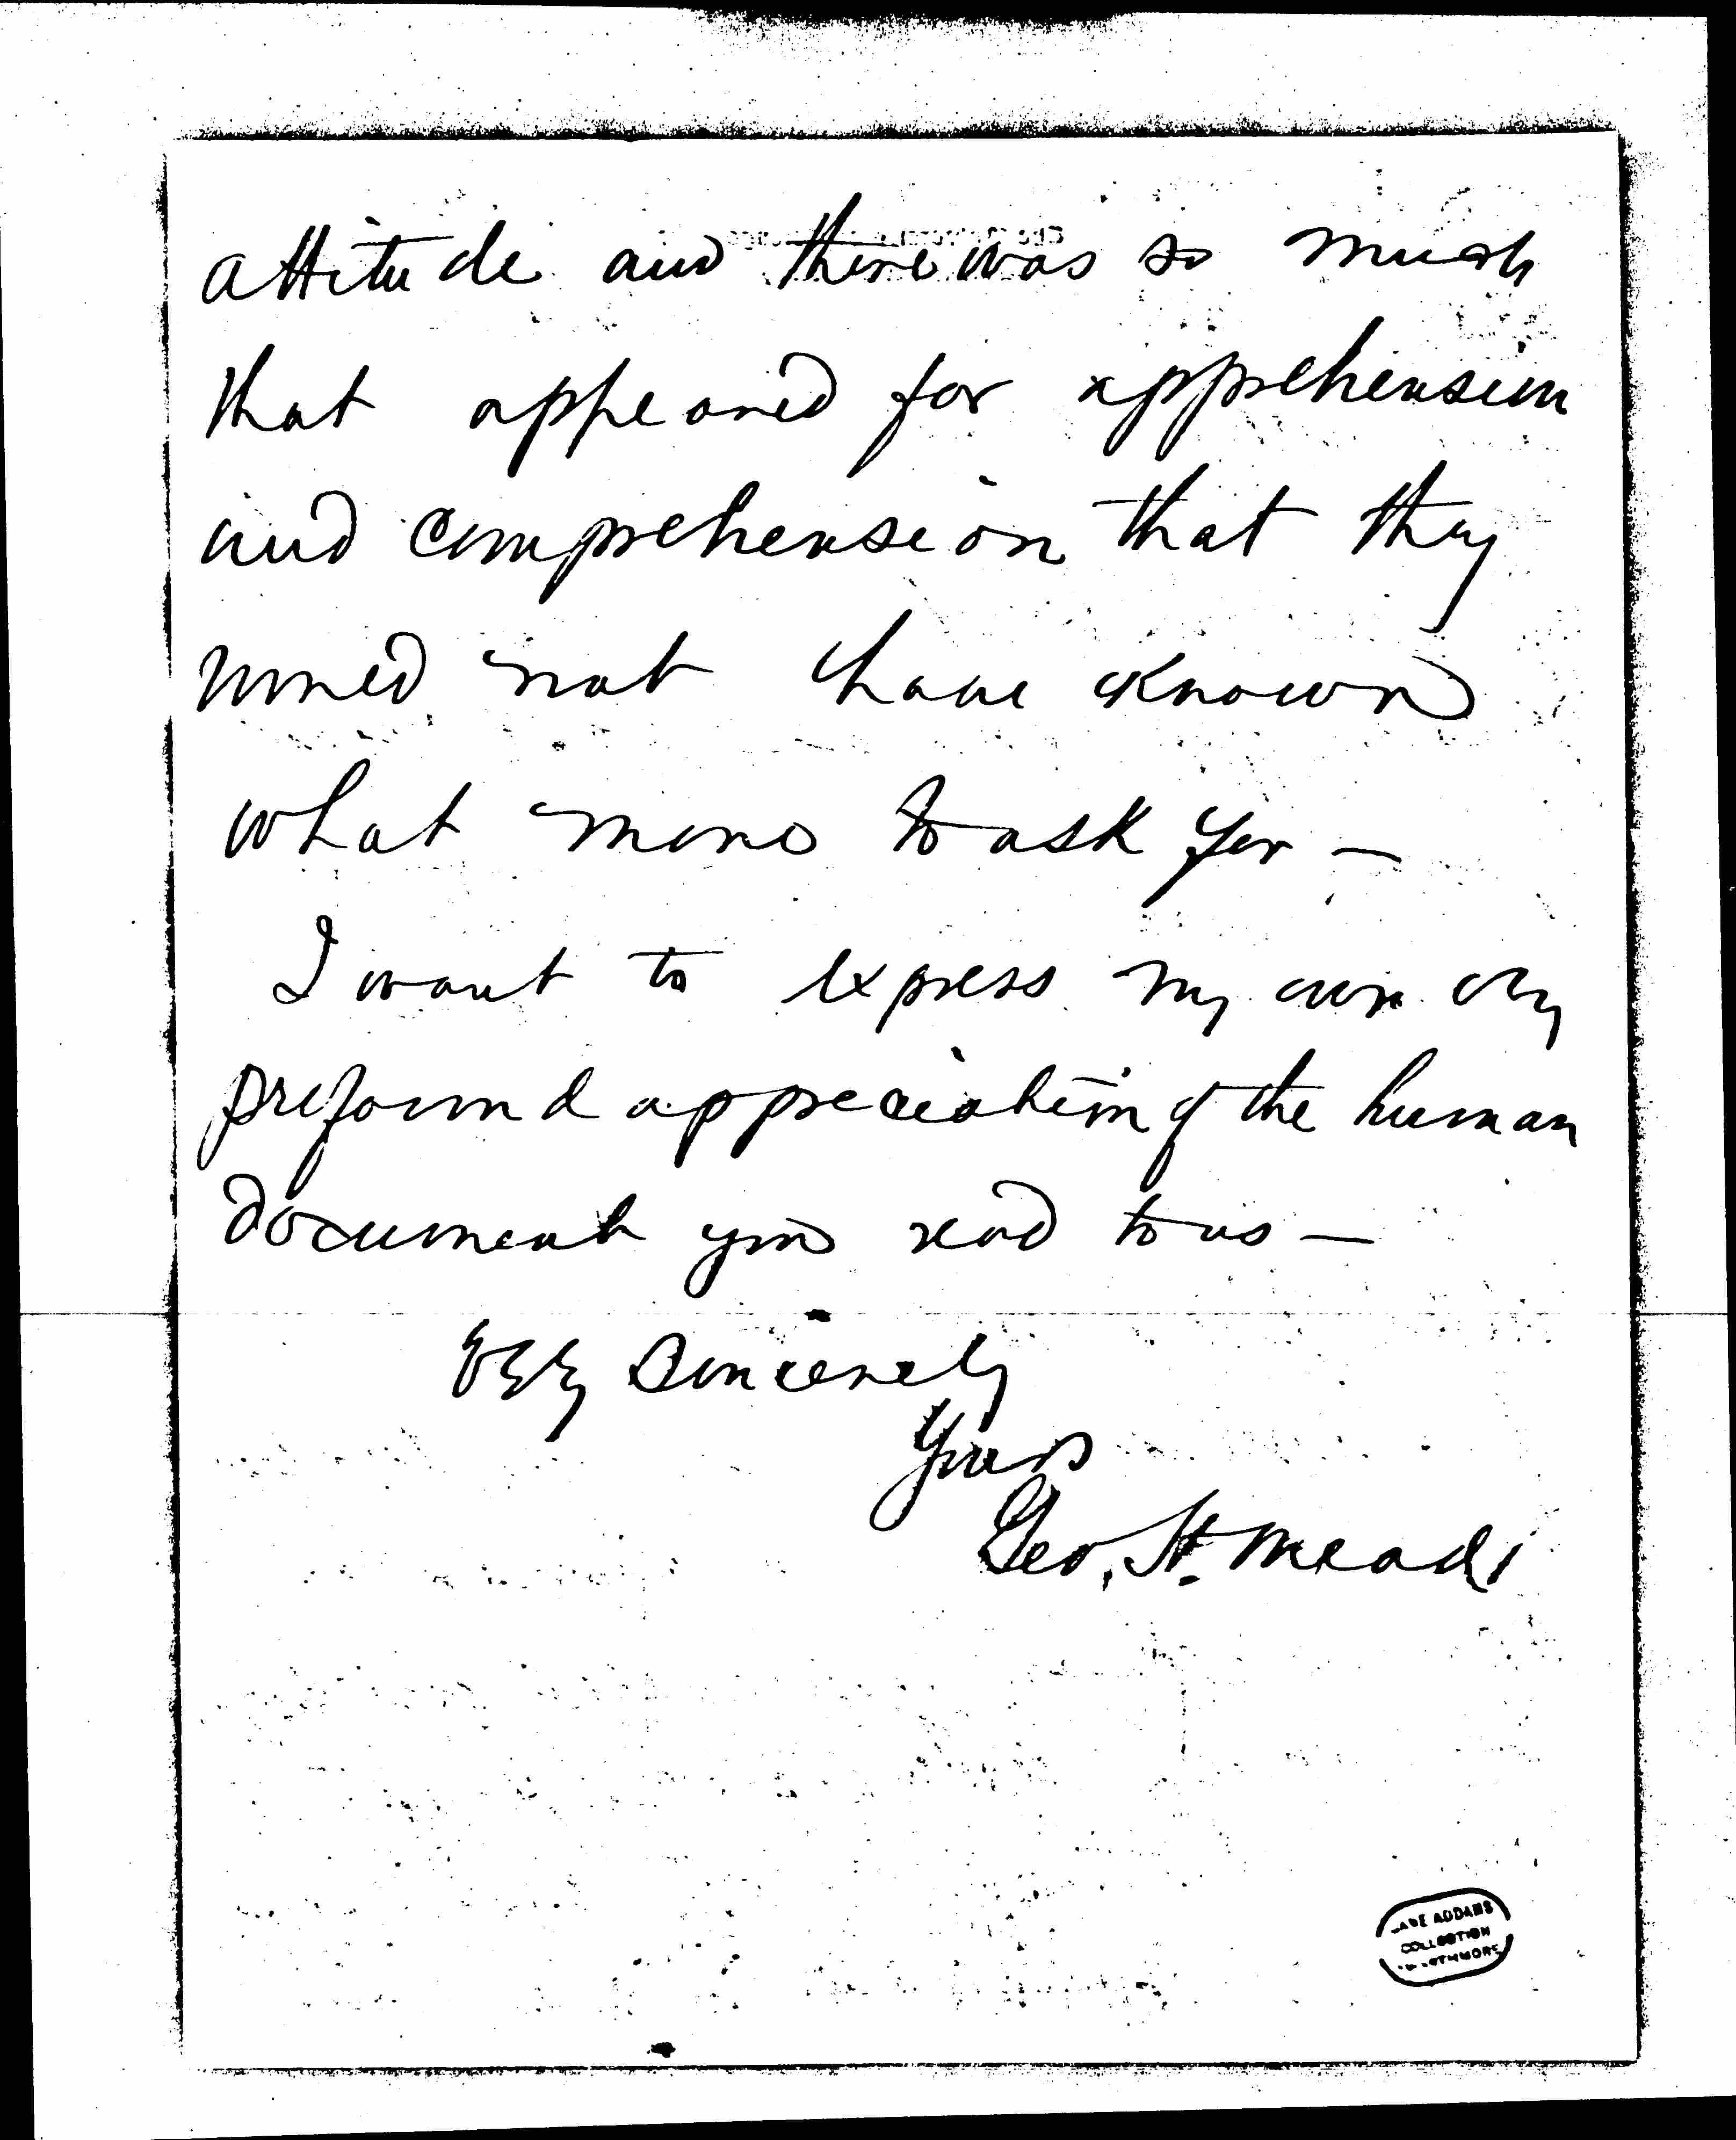 attitude and there was so much
that appeared for apprehension
and comprehension that they
not have known
what more to ask for —
I want to express my own very
profound appreciation of the human
document you read to us —
Very Sincerely
Yours
Geo. H. Mead
JANE ADDAMS
COLLECTION
SWARTHMORE